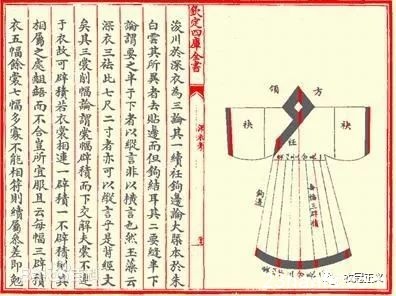 方領
袂
袂
衽
鉤邊
每幅三辟積
欽定四庫全書
深衣考
浚川於深衣為三論其一續衽鉤邊論大㮣本於朱
白雲其所異者去貼邊而但鉤結耳其二要縫半下
論謂要之半乎下者以縱言非以橫言也然玉藻云
深衣三袪比七尺二寸者亦可以縱言乎是背經文
矣其三裳削幅論謂裳幅辟積而下交解夫裳不連
于衣故可辟積若衣裳相連一辟積一不辟積則其
相屬之處齟齬而不合豈所宜服且云每幅三辟積
衣五幅餘裳七幅多寡不能相符則續屬參差即勉